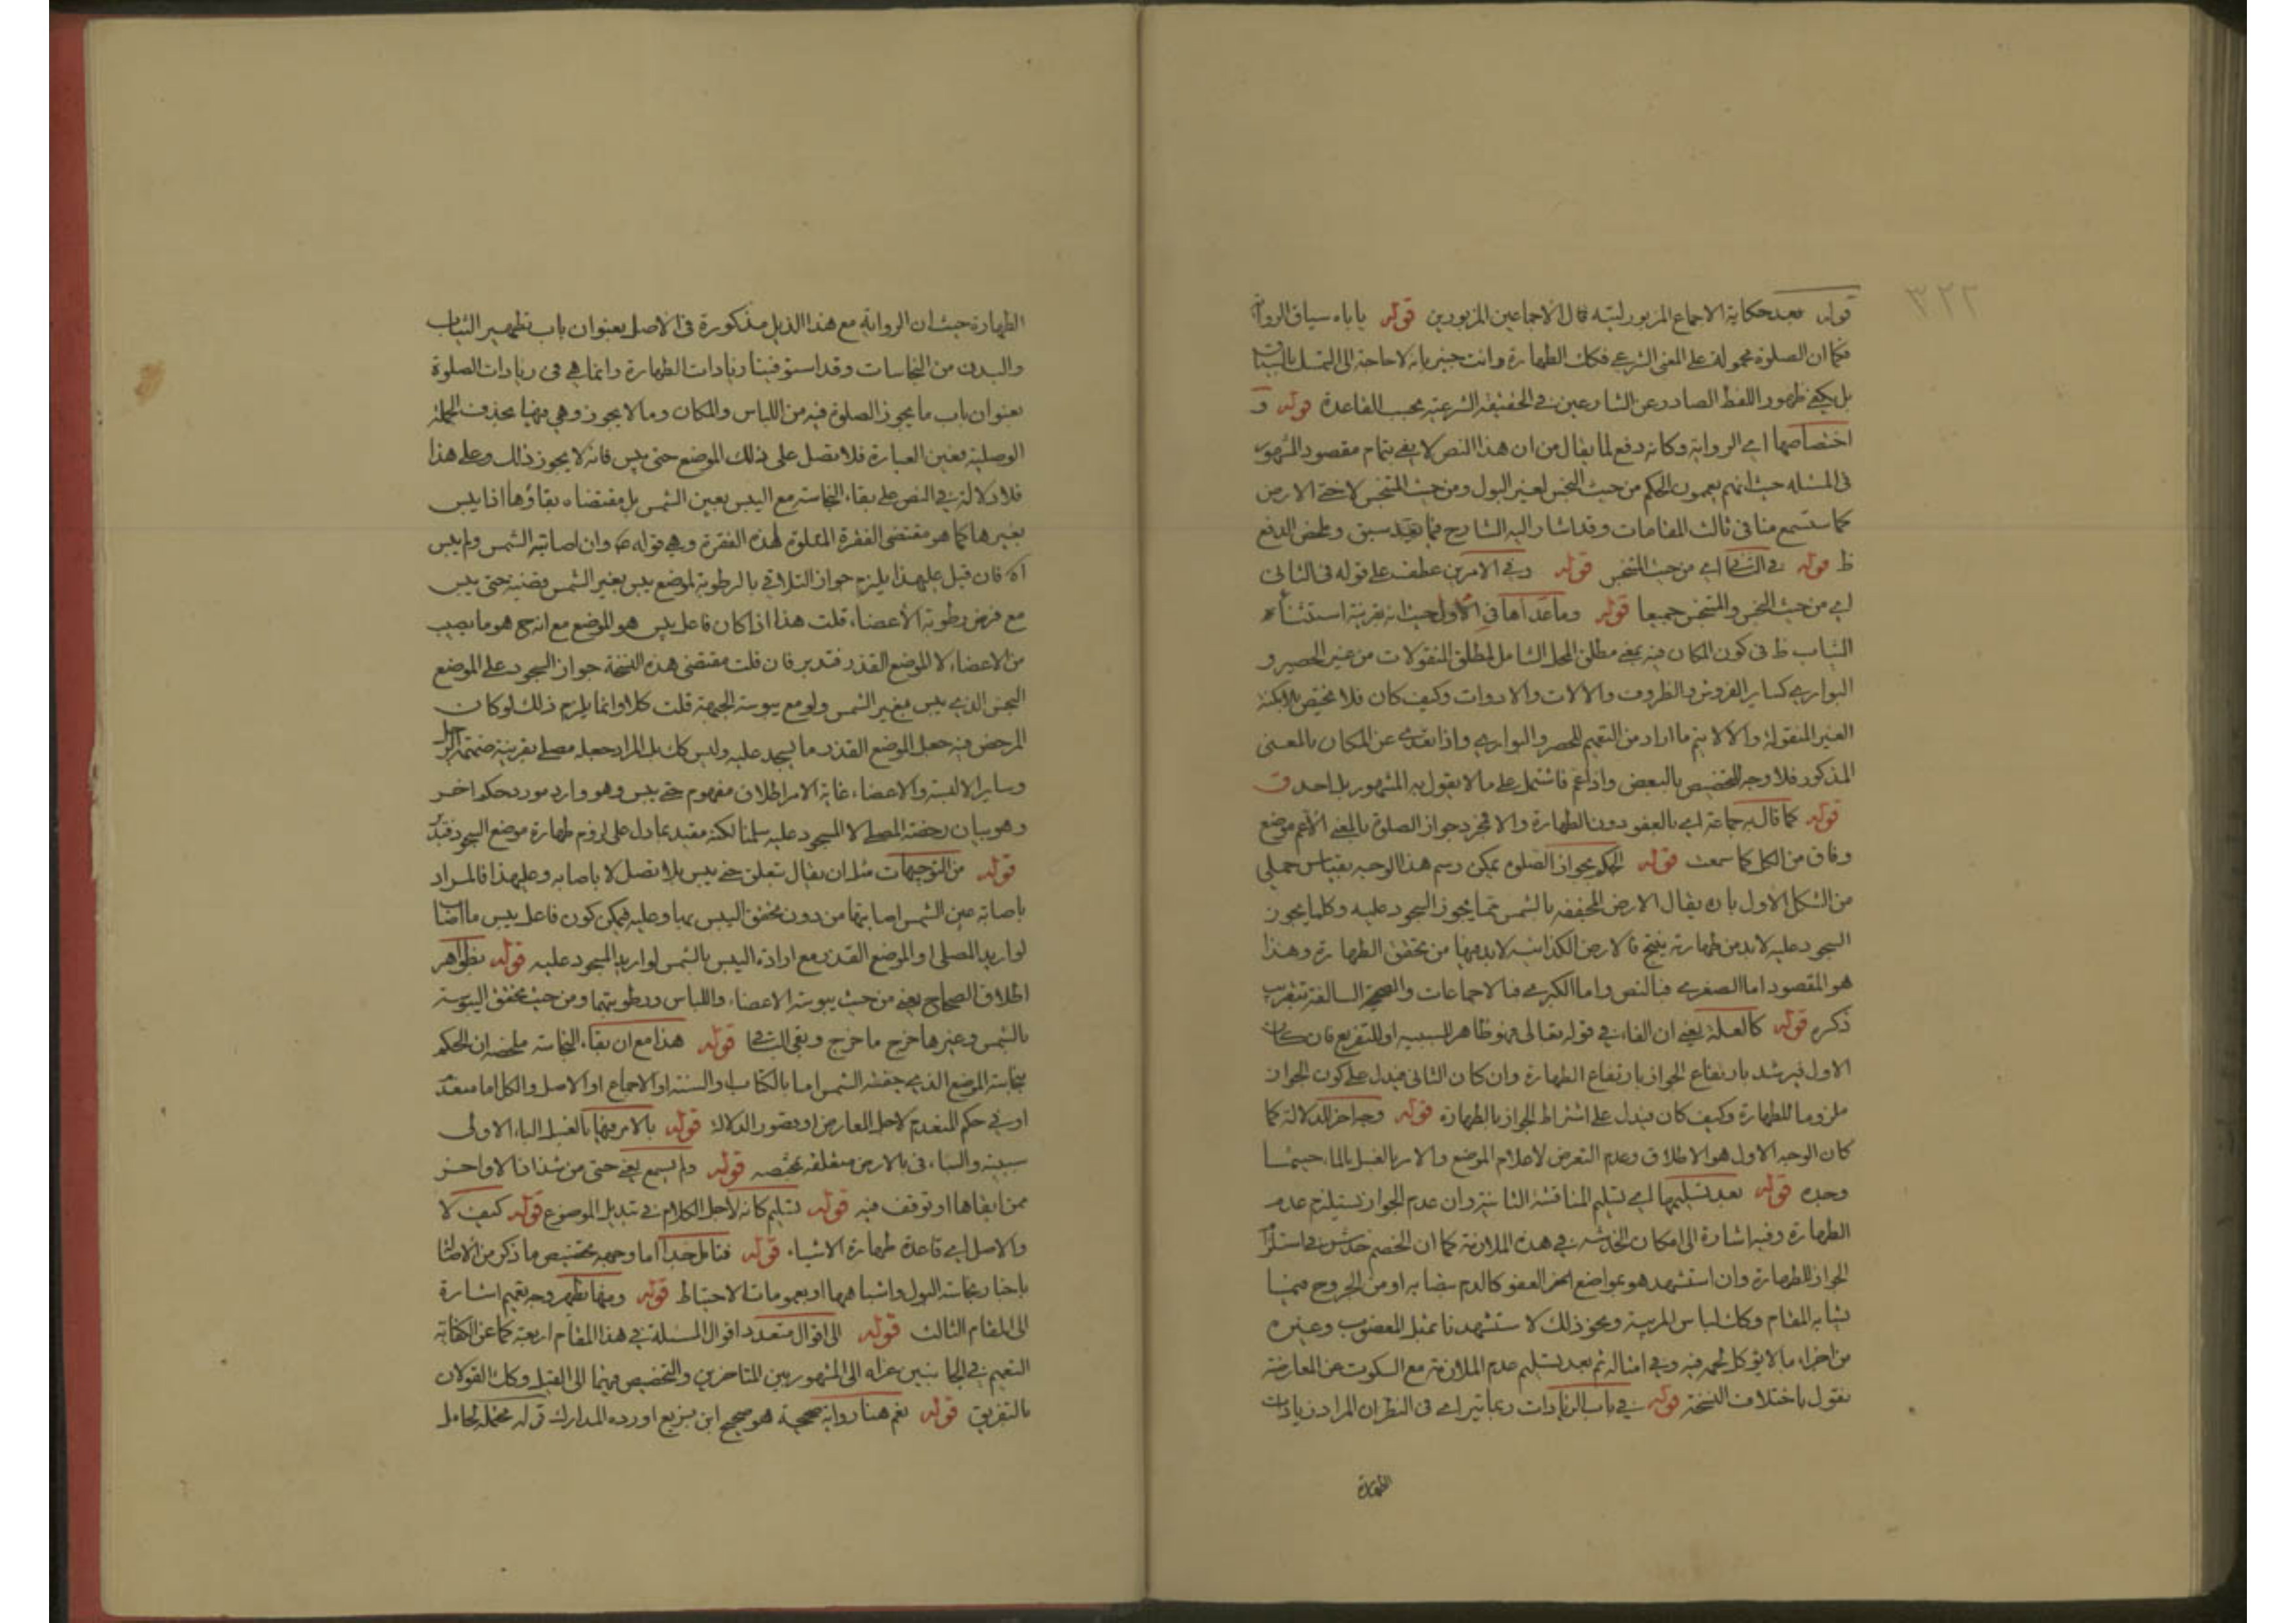 ٣٢٢
قوله بعد حكاية الاجماع المزبور لتبه قال الاجماعين المزبورين قوله ياباه سياق الرواية
فكما ان الصلوة محمولة على المعنى الشرعي فكك الطهارة وانت خبير بانه لا حاجة الى التمسك بالسياق
بل يكفي ظهور اللفظ الصادر عن الشارعين في الحقيقة الشرعية بحسب القاعدة قوله و
اختصاصها اي الرواية وكانه دفع لما يقال من ان هذا النص لا يفي بتمام مقصود المشهور
في المسئله حيث انهم يعممون الحكم من حيث النجس لغير البول ومن حيث المتنجس لا حتى الارض
كما ستسمع منا في ثالث المقامات وقد اشار اليه الشارح فيما بعيد سبق وملخص الدفع
ظ قوله في الثاني اي من حيث المتنجس قوله وفي الامرين عطف على قوله في الثاني
اي من حيث النجس والمتنجس جميعا قوله وما عداها في الاول حيث انه بقرينة استثناء
الثياب ظ في كون المكان فيه بمعنى مطلق المحل الشامل لمطلق المنقولات من غير الحصير و
البواري كساير الفروش والظروف والالات والادوات وكيف كان فلا يختص بالامكنة
الغير المنقولة والا لا يتم ما اراد من التعميم للحصر والبواري واذا تعدى عن المكان بالمعنى
المذكور فلا وجه للتخصيص بالبعض واذا عم فاشتمل على ما لا يقول به المشهور بل احد ق
قوله كما قاله جماعة اي بالعفو دون الطهارة والا فمجرد جواز الصلوة بالمعنى الاعم موضع
وفاق من الكل كما سمعت قوله الحكم بجواز الصلوة يمكن رسم هذا الوجه بقياس حملي
من الشكل الاول بان يقال الارض المجففه بالشمس مما يجوز السجود عليه وكلما يجوز
السجود عليه لابد من طهارته ينتج فالارض الكذائيه لابد فيها من تحقق الطهارة وهذا
هو المقصود اما الصغرى فبالنص واما الكبرى فبالاجماعات والصحيحة السالفة بتقريب
ذكره قوله كالعلة يعني ان الفاء في قوله تعالى فهو ظاهر للسببيه او للتفريع فان كان
الاول فيرشد بارتفاع الجواز بارتفاع الطهارة وان كان الثاني فيدل على كون الجواز
ملزوما للطهارة وكيف كان فيدل على اشتراط الجواز بالطهارة قوله وجه اخر للدلالة كما
كان الوجه الاول هو الاطلاق وعدم التعرض لاعلام الموضع والامر بالغسل بالماء حيثما
وجده قوله بعد تسليمها اي تسليم المناقشة الثانية وان عدم الجواز يستلزم عدم
الطهارة وفيه اشارة الى امكان الخدشه في هذه الملازمة كما ان الخصم خدش في استلزام
الجواز للطهارة وان استشهد هو بمواضع اخر العفو كالدم بضابه او من الجروح فيما
يشابه المقام وكك لباس المربية ونحو ذلك لاستشهدنا بمثل المغضوب وغيره
من اجزاء ما لا يؤكل لحمه فيه وفي امثاله ثم بعد تسليم عدم الملازمة مع السكوت عن المعارضة
نقول باختلاف النسخة قوله في باب الزيادات ربما يتراءى في النظر ان المراد زيادات
الطهارة
الطهارة حيث ان الرواية مع هذا الذيل مذكورة في الاصل بعنوان باب تطهير الثياب
والبدن من النجاسات وقد استوفينا زيادات الطهارة وانما هي في زيادات الصلوة
بعنوان باب ما يجوز الصلوة فيه من اللباس والمكان وما لا يجوز وهي فيها بحذف الجملة
الوصلية فعين العبارة فلا تصل على ذلك الموضع حتى ييبس فانه لا يجوز ذلك وعلى هذا
فلا دلالة في النص على بقاء النجاسة مع اليبس بعين الشمس بل مقتضاه بقاؤها اذا يبس
بغيرها كما هو مقتضى الفقرة المتلوة لهذه الفقرة وهي قوله ع وان اصابته الشمس ولم ييبس
آه فان قيل على هذا يلزم جواز التلاقي بالرطوبة لموضع يبس بغير الشمس قضية حتى ييبس
مع فرض رطوبة الاعضاء قلت هذا اذا كان فاعل ييبس هو الموضع مع انه ح هو ما يصيب
من الاعضاء لا الموضع القذر فتدبر فان قلت مقتضى هذه النسخة جواز السجود على الموضع
النجس الذي يبس بغير الشمس ولو مع يبوسة الجبهة قلت كلا وانما يلزم ذلك لو كان
المرخص فيه جعل الموضع القذر ما يسجد عليه وليس كك بل المراد جعله مصلى بقرينة ضميمة الرجل
وساير الالبسة والاعضاء غاية الامر اطلاق مفهوم حتى ييبس وهو وارد مورد حكم اخر
وهو بيان رخصة المصلى لا المسجود عليه سلمنا لكنه مقيد بما دل على لزوم طهارة موضع السجود فتدبر
قوله من التوجيهات مثل ان يقال تعلق حتى ييبس بلا تصل لا باصابه وعلى هذا فالمراد
باصابة عين الشمس اصابتها من دون تحقق اليبس بها وعليه فيمكن كون فاعل ييبس ما اصاب
لو اريد المصلى او الموضع القذر مع ارادة اليبس بالشمس لو اريد المسجود عليه قوله بظواهر
اطلاق الصحاح يعني من حيث يبوسة الاعضاء واللباس ورطوبتهما ومن حيث تحقق اليبوسة
بالشمس وغيرها خرج ما خرج وبقى الباقي قوله هذا مع ان بقاء النجاسة ملخصه ان الحكم
بنجاسة الموضع الذي جففته الشمس اما بالكتاب او السنة او الاجماع او الاصل والكل اما منعدم
او في حكم المنعدم لاجل المعارض او قصور الدلالة قوله بالامر فيها بالغسل الباء الاولى
سببية والباء في بالارض متعلقة بمختصه قوله ولم يسمع يعني حتى من شذ اذ الاواخر
ممن ابقاها او توقف فيه قوله تسليم كانه لاجل الكلام في تبديل الموضوع قوله كيف لا
والاصل اي قاعدة طهارة الاشياء قوله فتامل جدا اما وجهه بتخصيص ما ذكر من الاصل
باخبار نجاسة البول واشباهها او بعمومات الاحتياط قوله ومنها تظهر وجه تعميم اشارة
الى المقام الثالث قوله الى اقوال متعدد اقوال المسئلة في هذا المقام اربعة كما عن الكفاية
التعميم في الجانبين عزاه الى المشهور بين المتاخرين والتخصيص فيهما الى القيل وكك القولان
بالتفريق قوله نعم هنا رواية صحيحة هو صحيح ابن بزيع اورده المدارك قوله محتملة لحامل